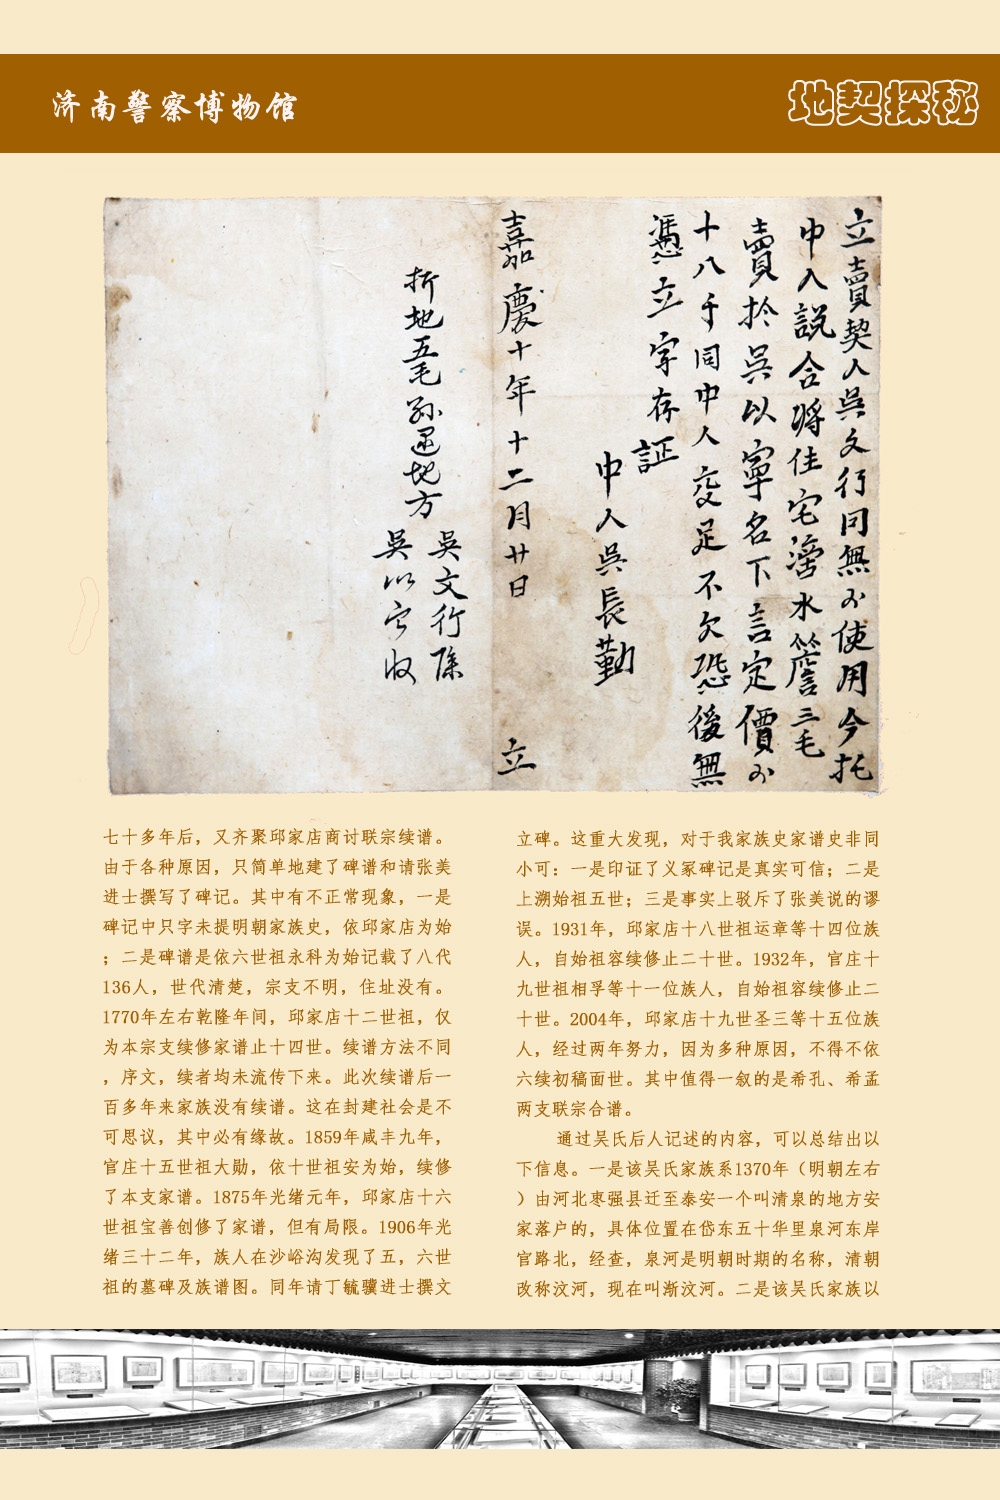 济南警察博物馆
地契探秘
立賣契人吳文行同無㐅使用今托
中人說合將住宅滴水簷三毛
賣於吳以寧名下言定價㐅
十八千同中人交足不欠恐後無
憑立字存証
中人吳長勤
嘉慶十年十二月廿日 立
折地五毛 地方
吳文行
吳以
七十多年后，又齐聚邱家店商讨联宗续谱。
由于各种原因，只简单地建了碑谱和请张美
进士撰写了碑记。其中有不正常现象，一是
碑记中只字未提明朝家族史，依邱家店为始
；二是碑谱是依六世祖永科为始记载了八代
136人，世代清楚，宗支不明，住址没有。
1770年左右乾隆年间，邱家店十二世祖，仅
为本宗支续修家谱止十四世。续谱方法不同
，序文，续者均未流传下来。此次续谱后一
百多年来家族没有续谱。这在封建社会是不
可思议，其中必有缘故。1859年咸丰九年，
官庄十五世祖大勋，依十世祖安为始，续修
了本支家谱。1875年光绪元年，邱家店十六
世祖宝善创修了家谱，但有局限。1906年光
绪三十二年，族人在沙峪沟发现了五，六世
祖的墓碑及族谱图。同年请丁毓骥进士撰文
立碑。这重大发现，对于我家族史家谱史非同
小可：一是印证了义冢碑记是真实可信；二是
上溯始祖五世；三是事实上驳斥了张美说的谬
误。1931年，邱家店十八世祖运章等十四位族
人，自始祖容续修止二十世。1932年，官庄十
九世祖相孚等十一位族人，自始祖容续修止二
十世。2004年，邱家店十九世圣三等十五位族
人，经过两年努力，因为多种原因，不得不依
六续初稿面世。其中值得一叙的是希孔、希孟
两支联宗合谱。
通过吴氏后人记述的内容，可以总结出以
下信息。一是该吴氏家族系1370年（明朝左右
）由河北枣强县迁至泰安一个叫清泉的地方安
家落户的，具体位置在岱东五十华里泉河东岸
官路北，经查，泉河是明朝时期的名称，清朝
改称汶河，现在叫渐汶河。二是该吴氏家族以